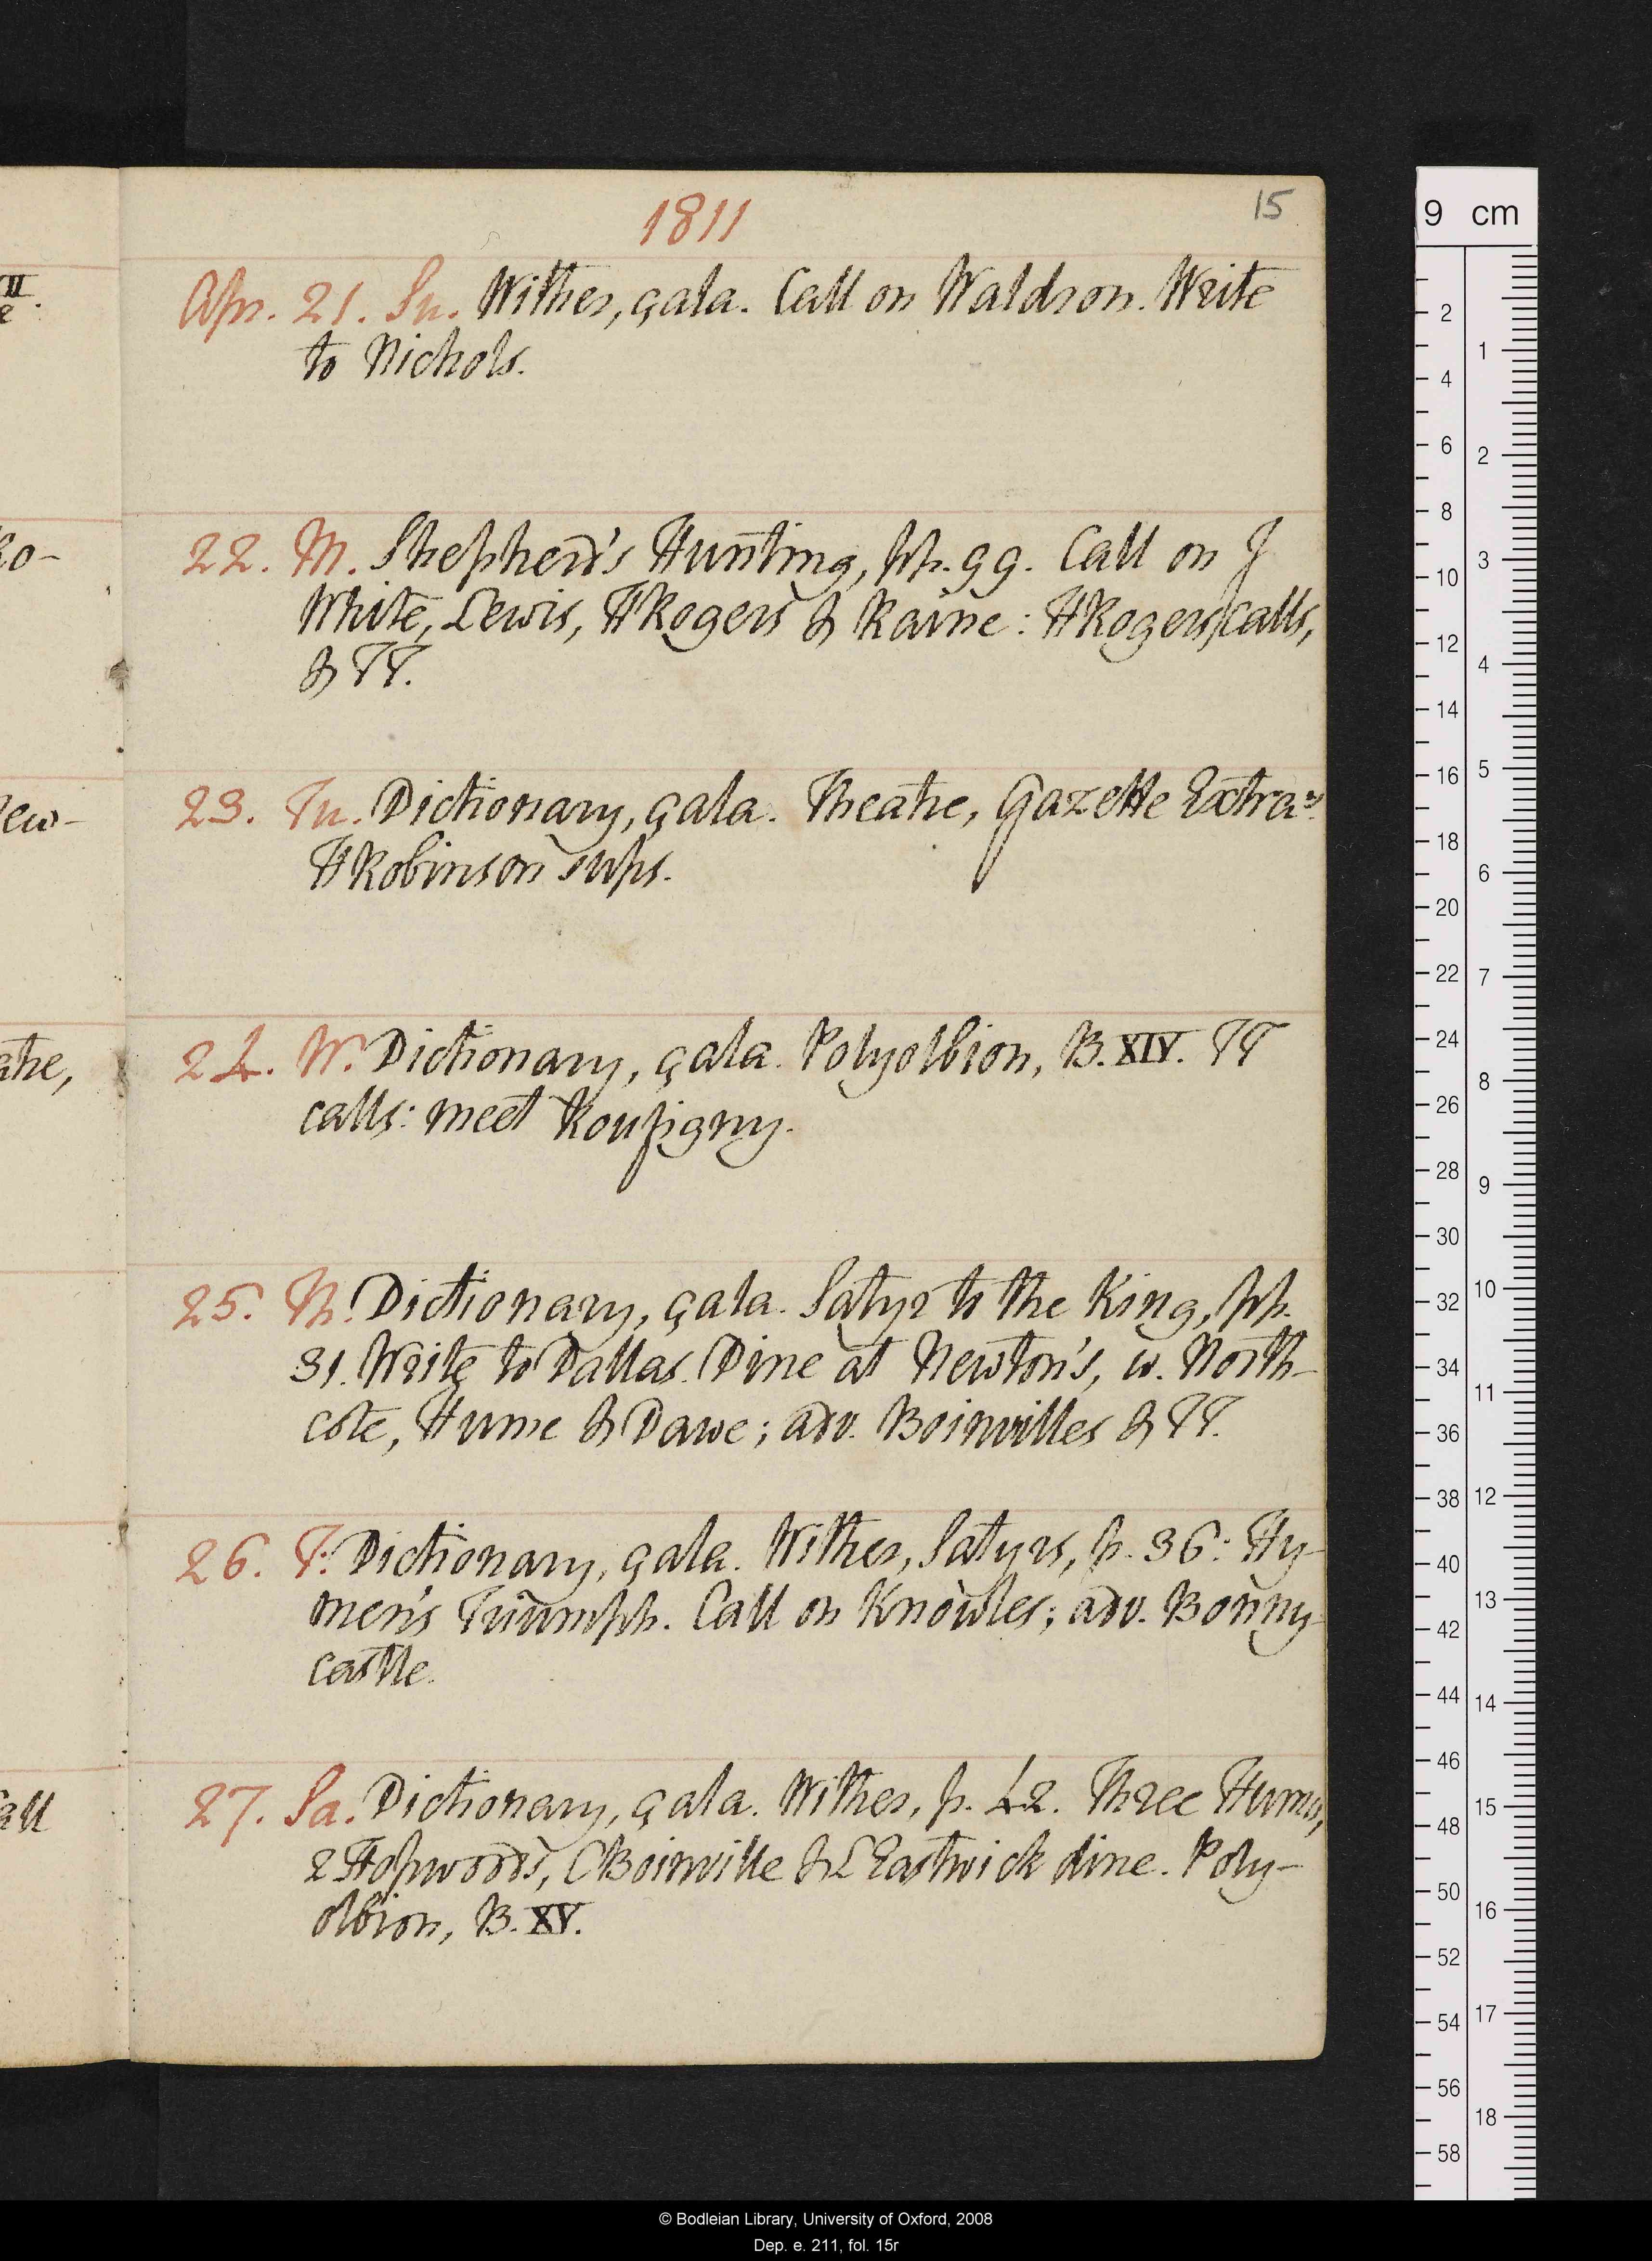 1811
15
Apr. 21. Su. Wither, çala. Call on Waldron. Write
to Nichols.
22. M. Shepherd's Hunting, pp. 99. Call on J
White, Lewis, H Rogers & Raine: H Rogers calls,
& TT.
23. Tu. Dictionary, çala. Theatre, Gazette Extray.
H Robinson sups.
24. W. Dictionary, çala. Polyolbion, B. XIV. TT
calls: meet Roupigny.
25. Th. Dictionary, çala. Satyr to the King, pp.
31. Write to Dallas. Dine at Newton's, w. North-
cote, Hume & Dawe; adv. Boinvilles & TT.
26. F. Dictionary, çala. Wither, Satyrs, p. 36: Hy-
men's Triumph. Call on Knowles; adv. Bonny-
castle.
27. Sa. Dictionary, çala. Wither, p. 42. Three Humes,
2 Hopwoods, C Boinville & L Eastwick dine. Poly-
olbion, B. XV.
II
e.
ko-
lew-
atre,
Call
9 cm
2
4
6
8
10
12
14
16
18
20
22
24
26
28
30
32
34
36
38
40
42
44
46
48
50
52
54
56
58
1
2
3
4
5
6
7
8
9
10
11
12
13
14
15
16
17
18
© Bodleian Library, University of Oxford, 2008
Dep. e. 211, fol. 15r